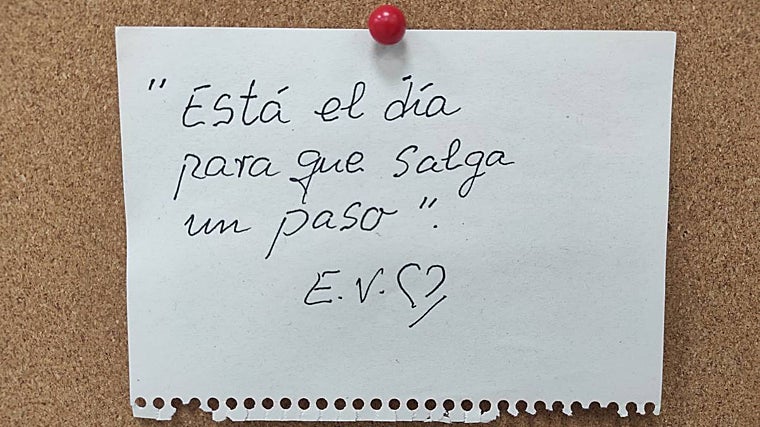 "Está el día
para que salga
un paso".
E.V.♡